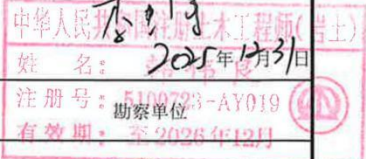 中华人民共和国注册土木工程师(岩土)
2025年12月31日
姓 名:
注册号: 5100723-AY019
勘察单位
有效期: 至2026年12月